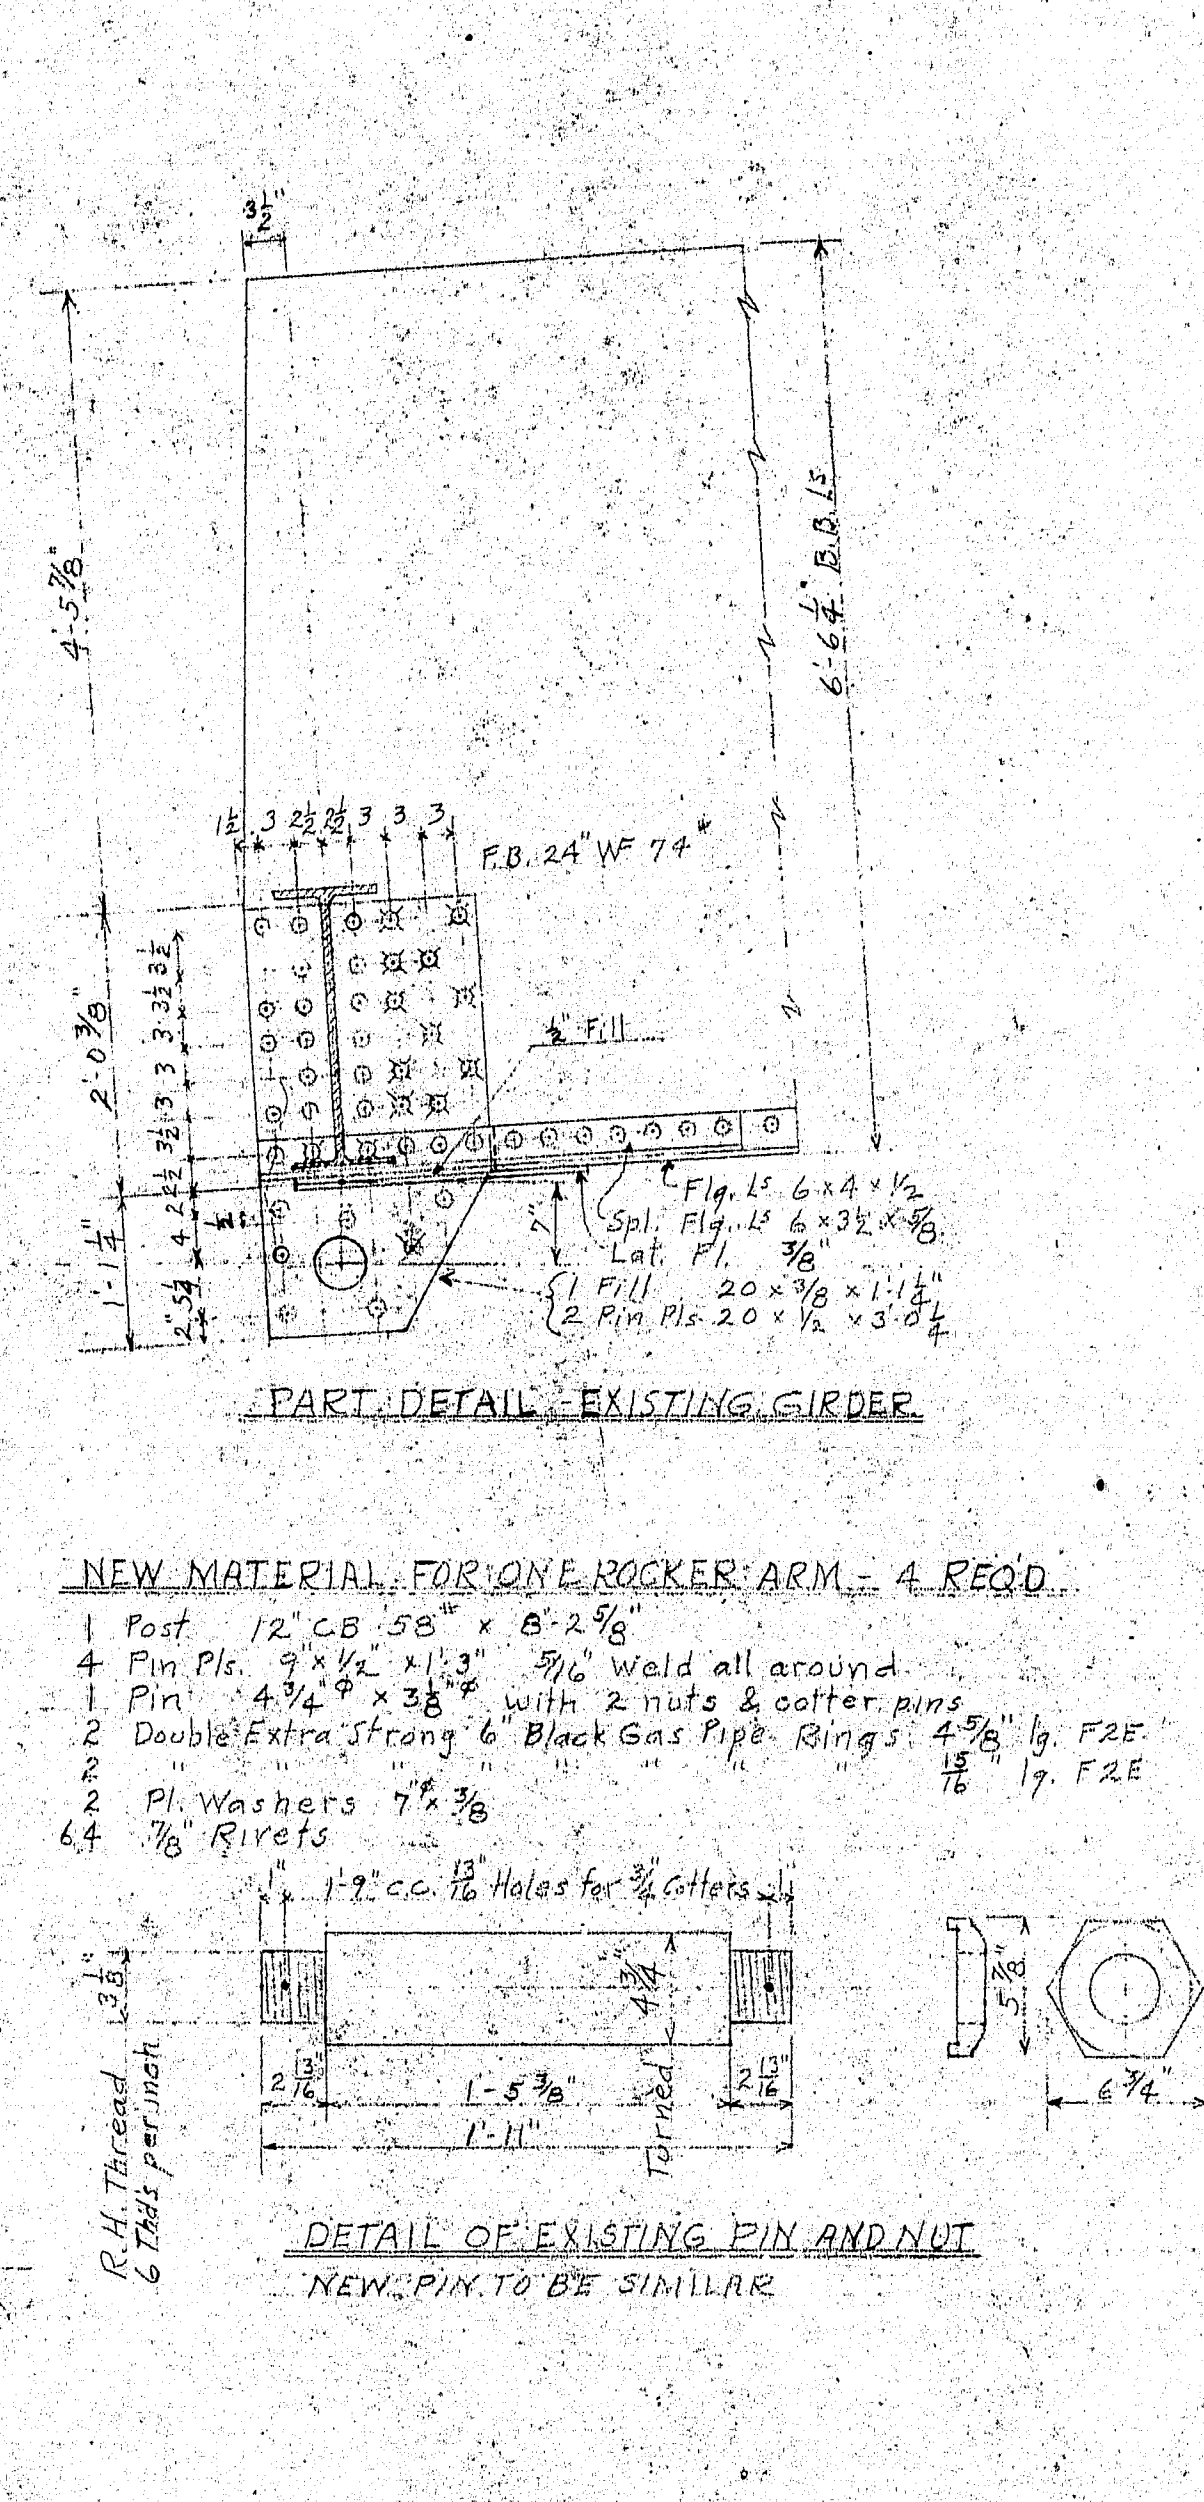 3 1/2"
4'-5 7/8"
6'-6 1/4" B.B. Ls
1 1/2 3 2 1/2 2 1/2 3 3 3
F.B. 24" WF 74#
2'-0 3/8"
3 1/2 3 1/2 3 3 3 3 1/2 2 1/2
1/2" Fill
1'-1 1/4"
4 2
2" 5 1/4
7"
Flg. Ls 6 x 4 x 1/2
Spl. Flg. Ls 6 x 3 1/2 x 5/8
Lat. Pl. 3/8"
1 Fill 20 x 3/8 x 1'-1 1/4"
2 Pin Pls. 20 x 1/2 x 3'-0 1/4
PART DETAIL - EXISTING GIRDER
NEW MATERIAL FOR ONE ROCKER ARM - 4 REQ'D
1 Post 12" CB 58# x 8'-2 5/8"
4 Pin Pls. 9" x 1/2" x 1'-3" 5/16" Weld all around
1 Pin 4 3/4"ϕ x 3 1/8"ϕ with 2 nuts & cotter pins
2 Double Extra Strong 6" Black Gas Pipe Rings 4 5/8" lg. F2E
2 " " " " " " " " 15/16" lg. F2E
2 Pl. Washers 7"ϕ x 3/8
64 7/8" Rivets
1" 1'-9" c.c. 13/16" Holes for 3/4" Cotters 1"
3 1/8"
4 3/4"
Turned
5 7/8"
R.H. Thread
6 Thds per inch
2 13/16" 1'-5 3/8" 2 13/16"
6 3/4"
1'-11"
DETAIL OF EXISTING PIN AND NUT
NEW PIN TO BE SIMILAR